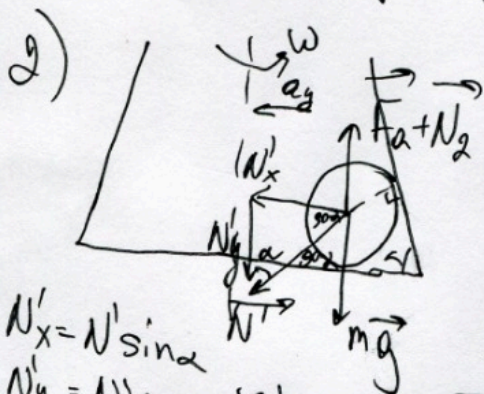 2)
ω
a_y
F_a + N_2
N'_x
90-α
N'_y α 90-α α
N'
mg
N'_x = N' sin α